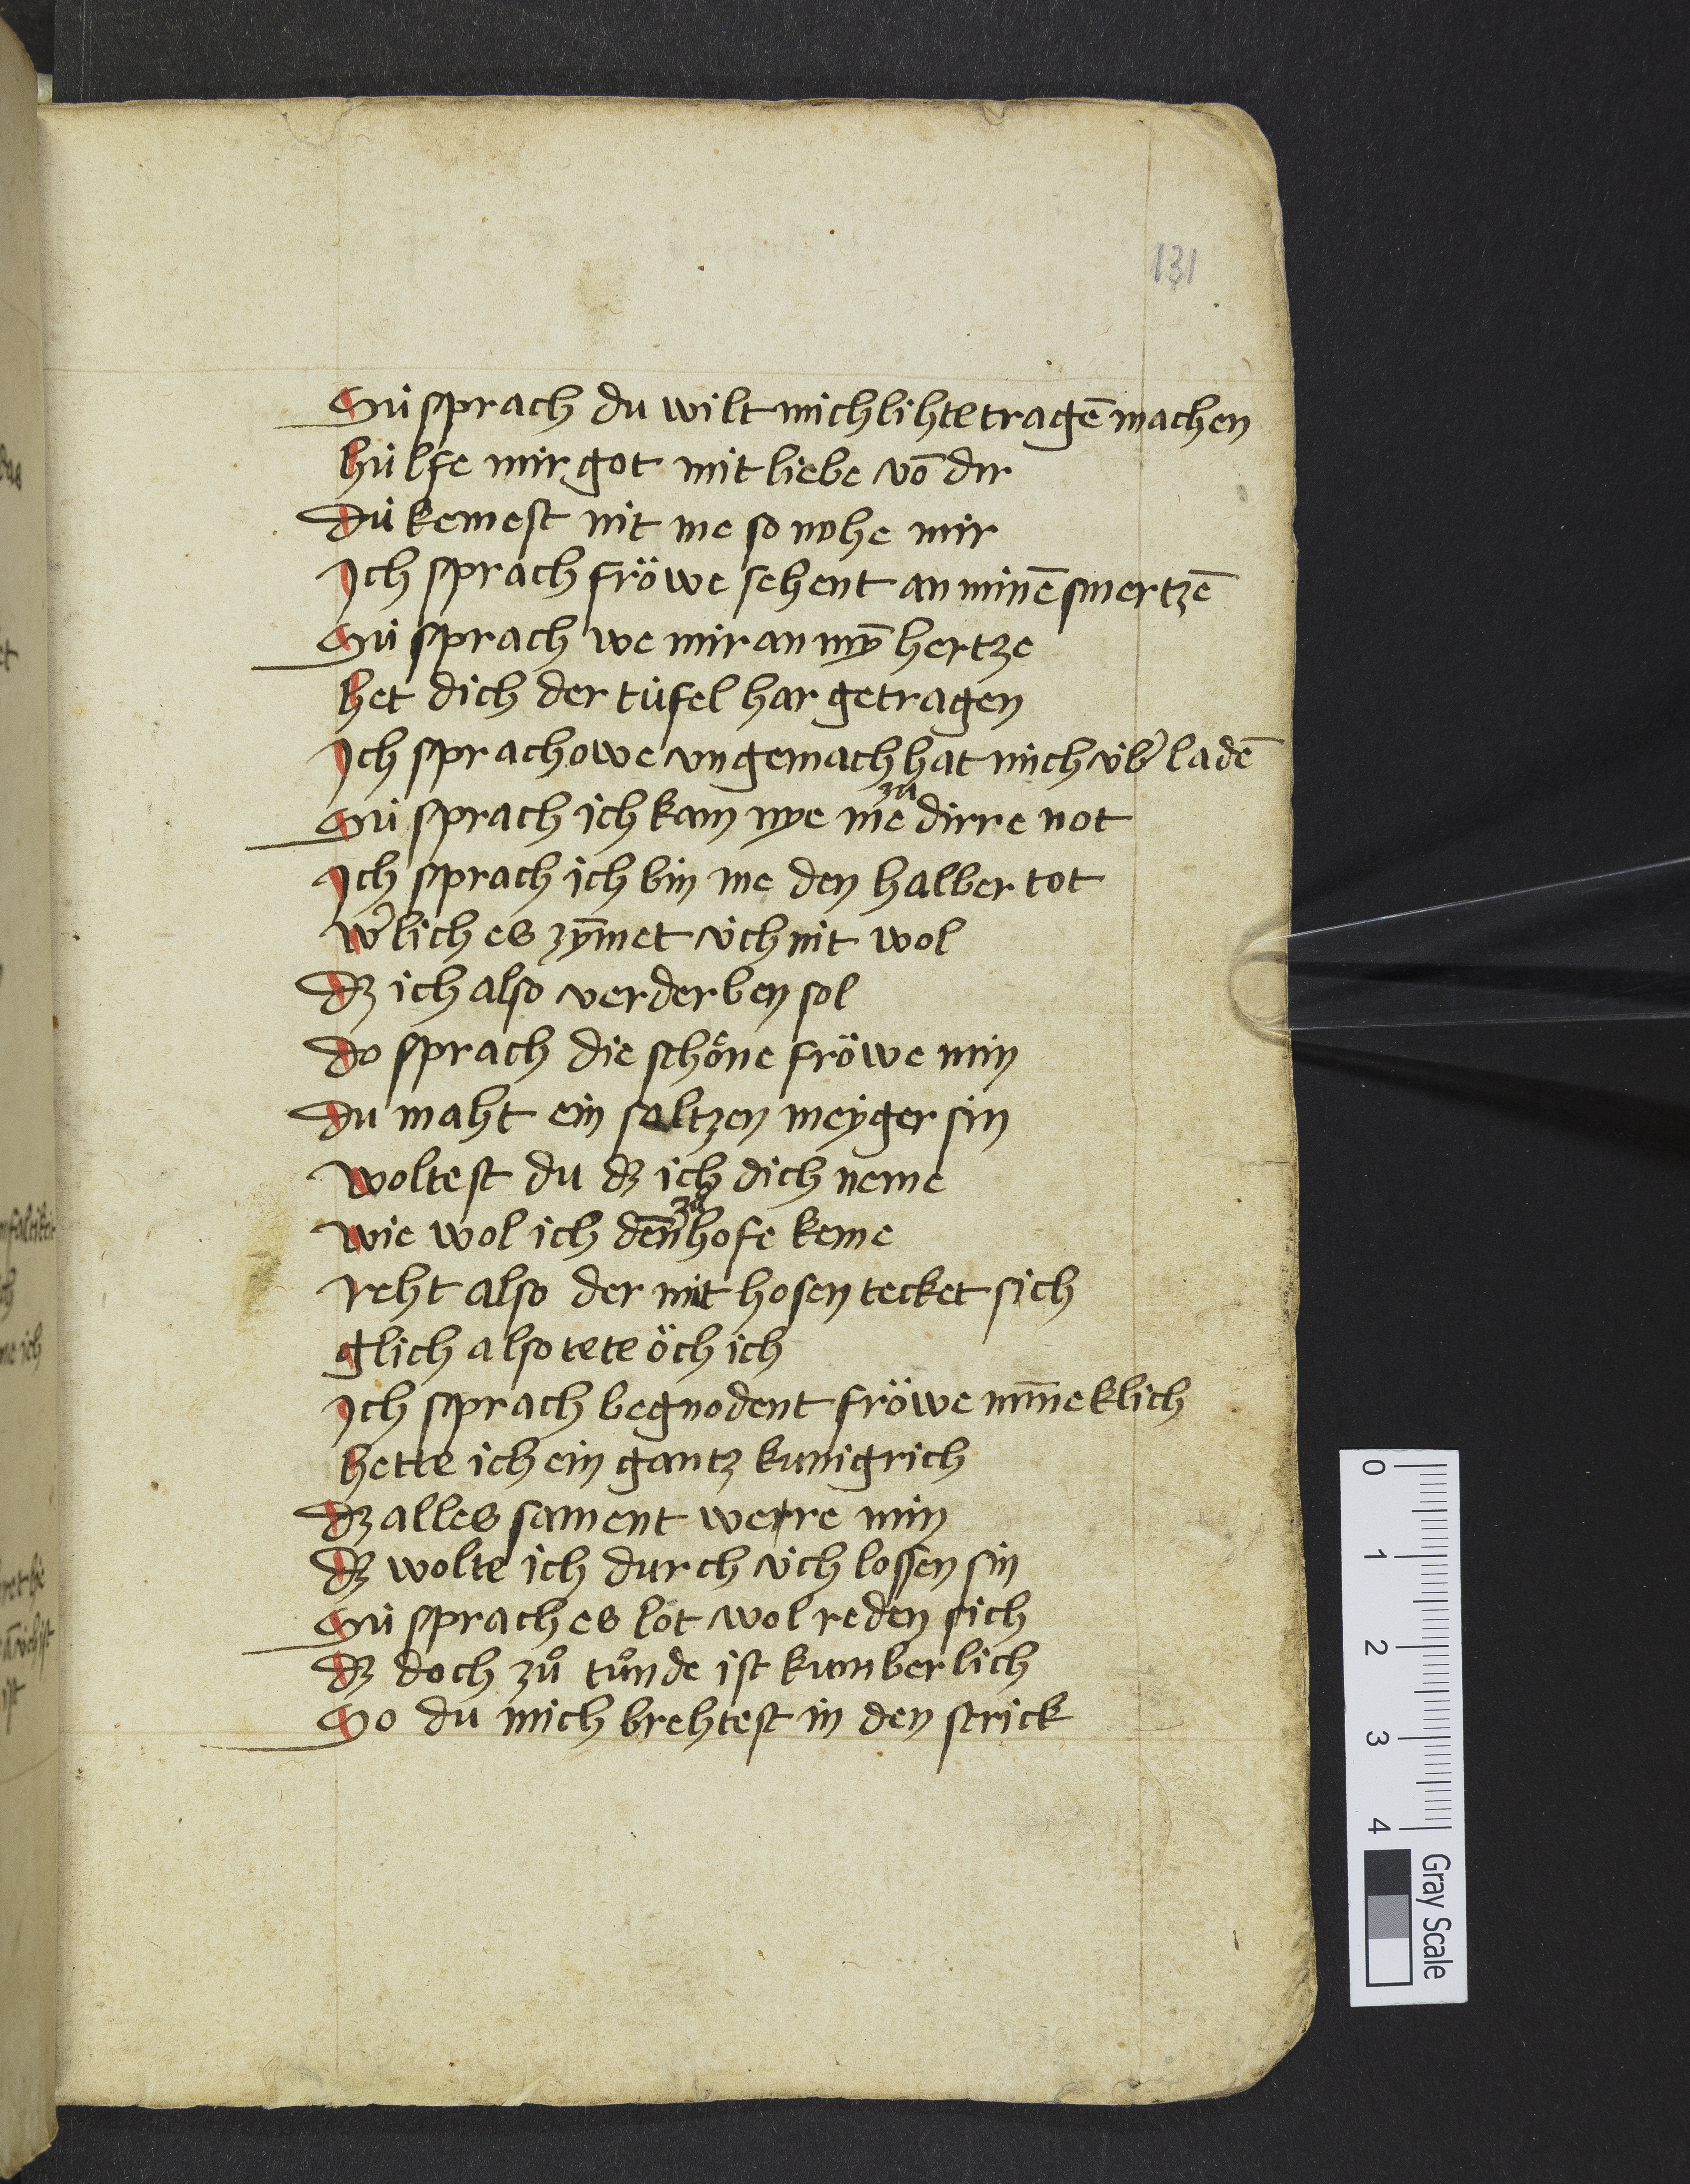 131
Sú sprach du wilt mich lihte tragē machen
húlfe mir got mit liebe vō dir
Dú kemest nit me so nohe mir
Ich sprach fröwe sehent an minē smertzē
Sú sprach we mir an mȳ hertze
het dich der túfel har getragen
Ich sprach owe vngemach hat mich úb͛ladē
zü
Sú sprach ich kam nye me dirre not
Ich sprach ich bin me den halber tot
w͛lich es zȳmet úch nit wol
Dz ich also verderben sol
Do sprach die schöne fröwe min
Du maht ein saltzen meyger sin
Woltest du dz ich dich neme
zü
Wie wol ich deñ hofe keme
Reht also der mit hosen tecket sich
glich also tete öch ich
Ich sprach begnodent fröwe miñeklich
hette ich ein gantz kunigrich
Dz alles sament werre min
Dz wolte ich durch úch lossen sin
Sú sprach es lot wol reden sich
Dz doch zů tůnde ist kumberlich
So du mich brehtest in den strick
0 1 2 3 4
Gray Scale